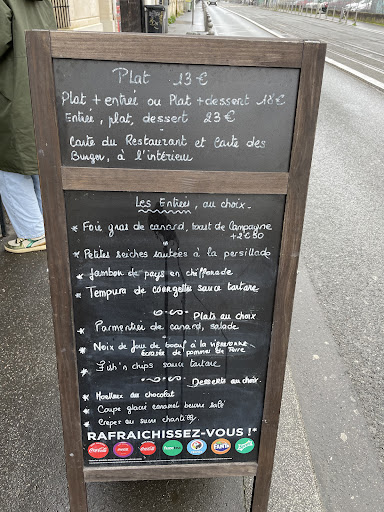 Plat 13 €
Plat + entrée ou Plat + dessert 18 €
Entrée, plat, dessert 23 €
Carte du Restaurant et Carte des
Burger, à l'intérieur
Les Entrées, au choix
* Foie gras de canard, toast de Campagne
+ 2€50
* Petites seiches sautées à la persillade
* Jambon de pays en chiffonade
* Tempura de courgettes sauce tartare
Plats au choix
* Parmentier de canard, salade
* Noix de joue de boeuf à la vigneronne
écrasée de pomme de Terre
* Fish'n chips sauce tartare
Desserts au choix
* Moelleux au chocolat
* Coupe glacée caramel beurre salé
* Crepes au sucre chantilly
RAFRAICHISSEZ-VOUS !*